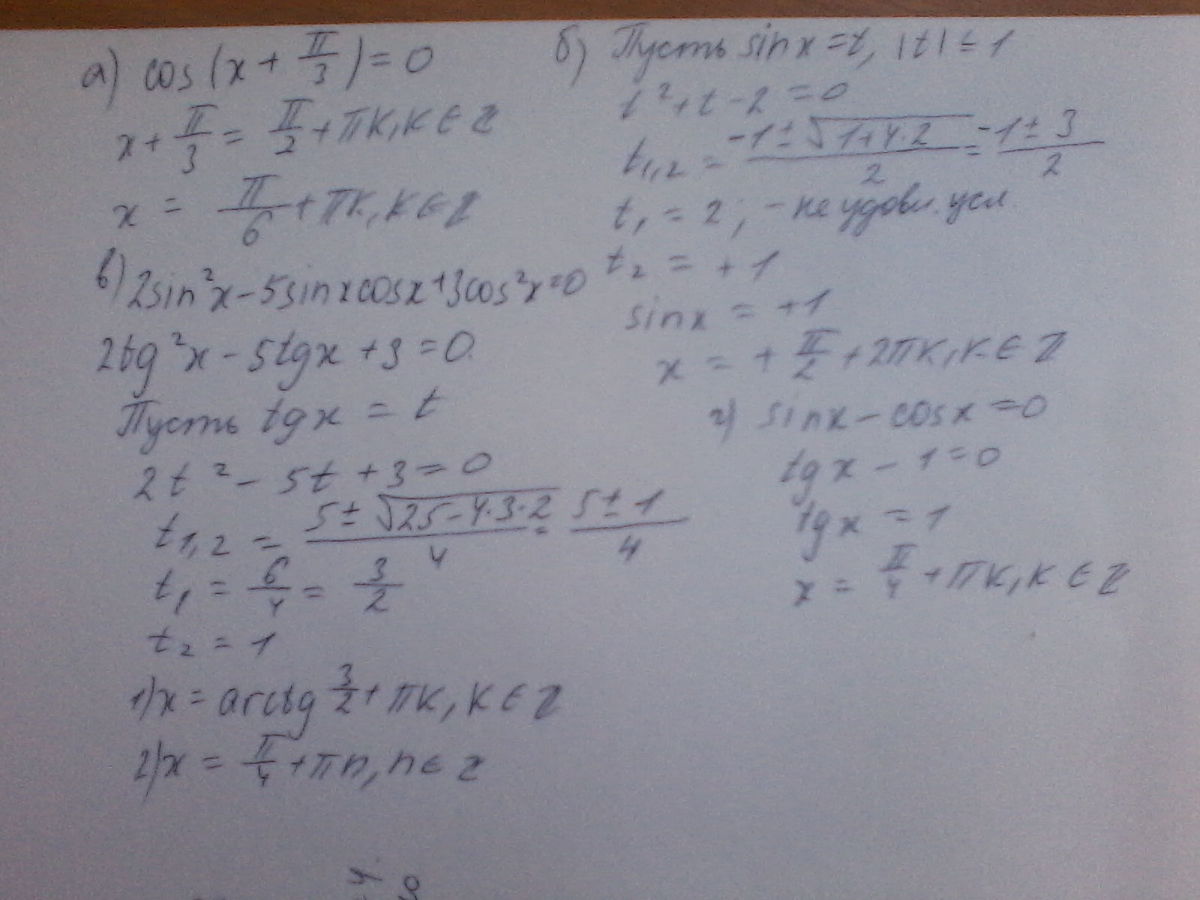 а) cos(x + π/3) = 0
x + π/3 = π/2 + πk, k ∈ Z
x = π/6 + πk, k ∈ Z
в) 2sin²x - 5sinxcosx + 3cos²x = 0
2tg²x - 5tgx + 3 = 0
Пусть tgx = t
2t² - 5t + 3 = 0
t₁,₂ = (5 ± √(25 - 4·3·2))/4 = (5 ± 1)/4
t₁ = 6/4 = 3/2
t₂ = 1
1) x = arctg 3/2 + πk, k ∈ Z
2) x = π/4 + πn, n ∈ Z
б) Пусть sinx = t, |t| ≤ 1
t² + t - 2 = 0
t₁,₂ = (-1 ± √(1 + 4·2))/2 = (-1 ± 3)/2
t₁ = 2; - не удовл. усл
t₂ = +1
sinx = +1
x = + π/2 + 2πk, k ∈ Z
г) sinx - cosx = 0
tgx - 1 = 0
tgx = 1
x = π/4 + πk, k ∈ Z